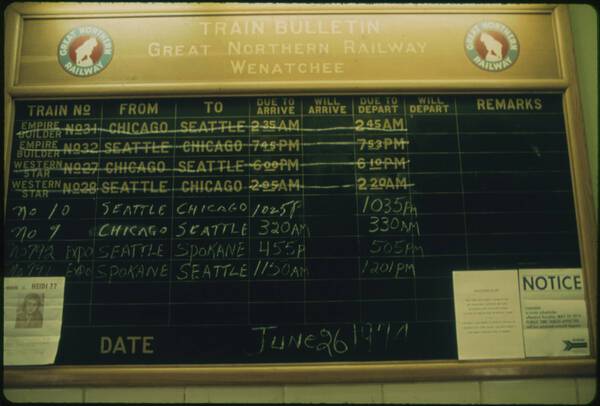 TRAIN BULLETIN
GREAT NORTHERN RAILWAY
WENATCHEE
GREAT NORTHERN RAILWAY
GREAT NORTHERN RAILWAY
TRAIN NO FROM TO DUE TO ARRIVE WILL ARRIVE DUE TO DEPART WILL DEPART REMARKS
EMPIRE BUILDER NO31 CHICAGO SEATTLE 2 35 AM 2 45 AM
EMPIRE BUILDER NO32 SEATTLE CHICAGO 7 45 PM 7 53 PM
WESTERN STAR NO27 CHICAGO SEATTLE 6 00 PM 6 10 PM
WESTERN STAR NO28 SEATTLE CHICAGO 2 05 AM 2 20 AM
No 10 SEATTLE CHICAGO 1025P 1035PM
No 9 CHICAGO SEATTLE 320AM 330AM
No 792 EXPO SEATTLE SPOKANE 455P 505PM
No 791 EXPO SPOKANE SEATTLE 1150AM 1201PM
HEIDI
NOTICE
DATE June 26 1974